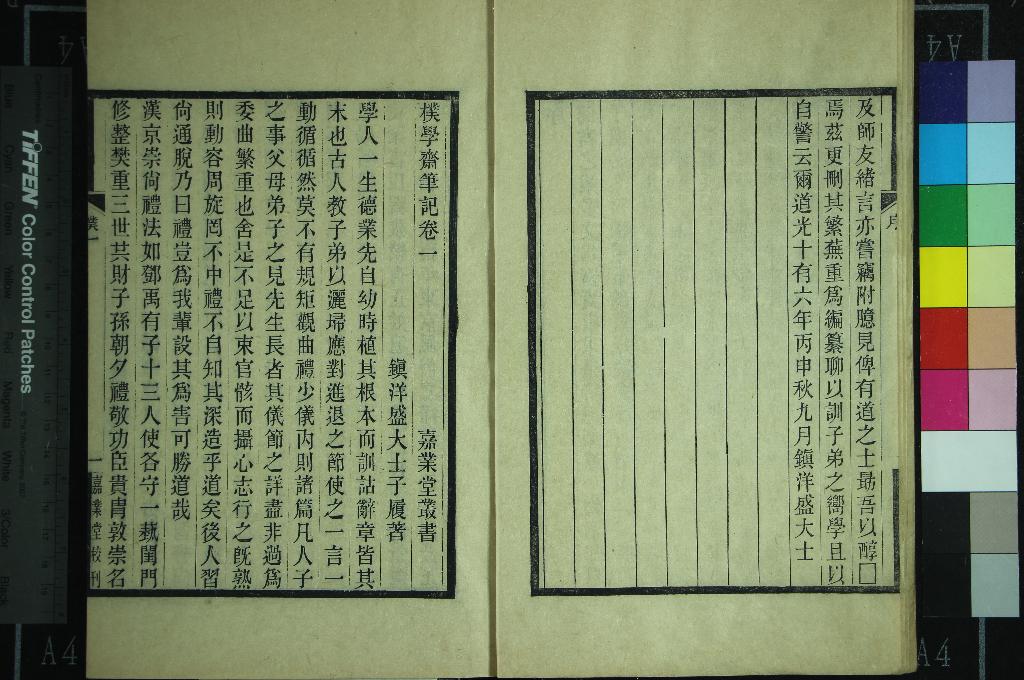 及師友緒言亦嘗竊附臆見俾有道之士勖吾以醇□
焉茲更刪其繁蕪重爲編纂聊以訓子弟之嚮學且以
自警云爾道光十有六年丙申秋九月鎭洋盛大士
序
樸學齋筆記卷一
嘉業堂叢書
鎭洋盛大士子履著
學人一生德業先自幼時植其根本而訓詁辭章皆其
末也古人教子弟以灑埽應對進退之節使之一言一
動循循然莫不有規矩觀曲禮少儀內則諸篇凡人子
之事父母弟子之見先生長者其儀節之詳盡非過爲
委曲繁重也舍是不足以束官骸而攝心志行之旣熟
則動容周旋罔不中禮不自知其深造乎道矣後人習
尙通脫乃曰禮豈爲我輩設其爲害可勝道哉
漢京崇尙禮法如鄧禹有子十三人使各守一蓺閨門
修整樊重三世共財子孫朝夕禮敬功臣貴胄敦崇名
樸一
一
嘉業堂校刊
TIFFEN Color Control Patches
Blue
Cyan
Green
Yellow
Red
Magenta
White
3/Color
Black
A4
A4
A4
A4